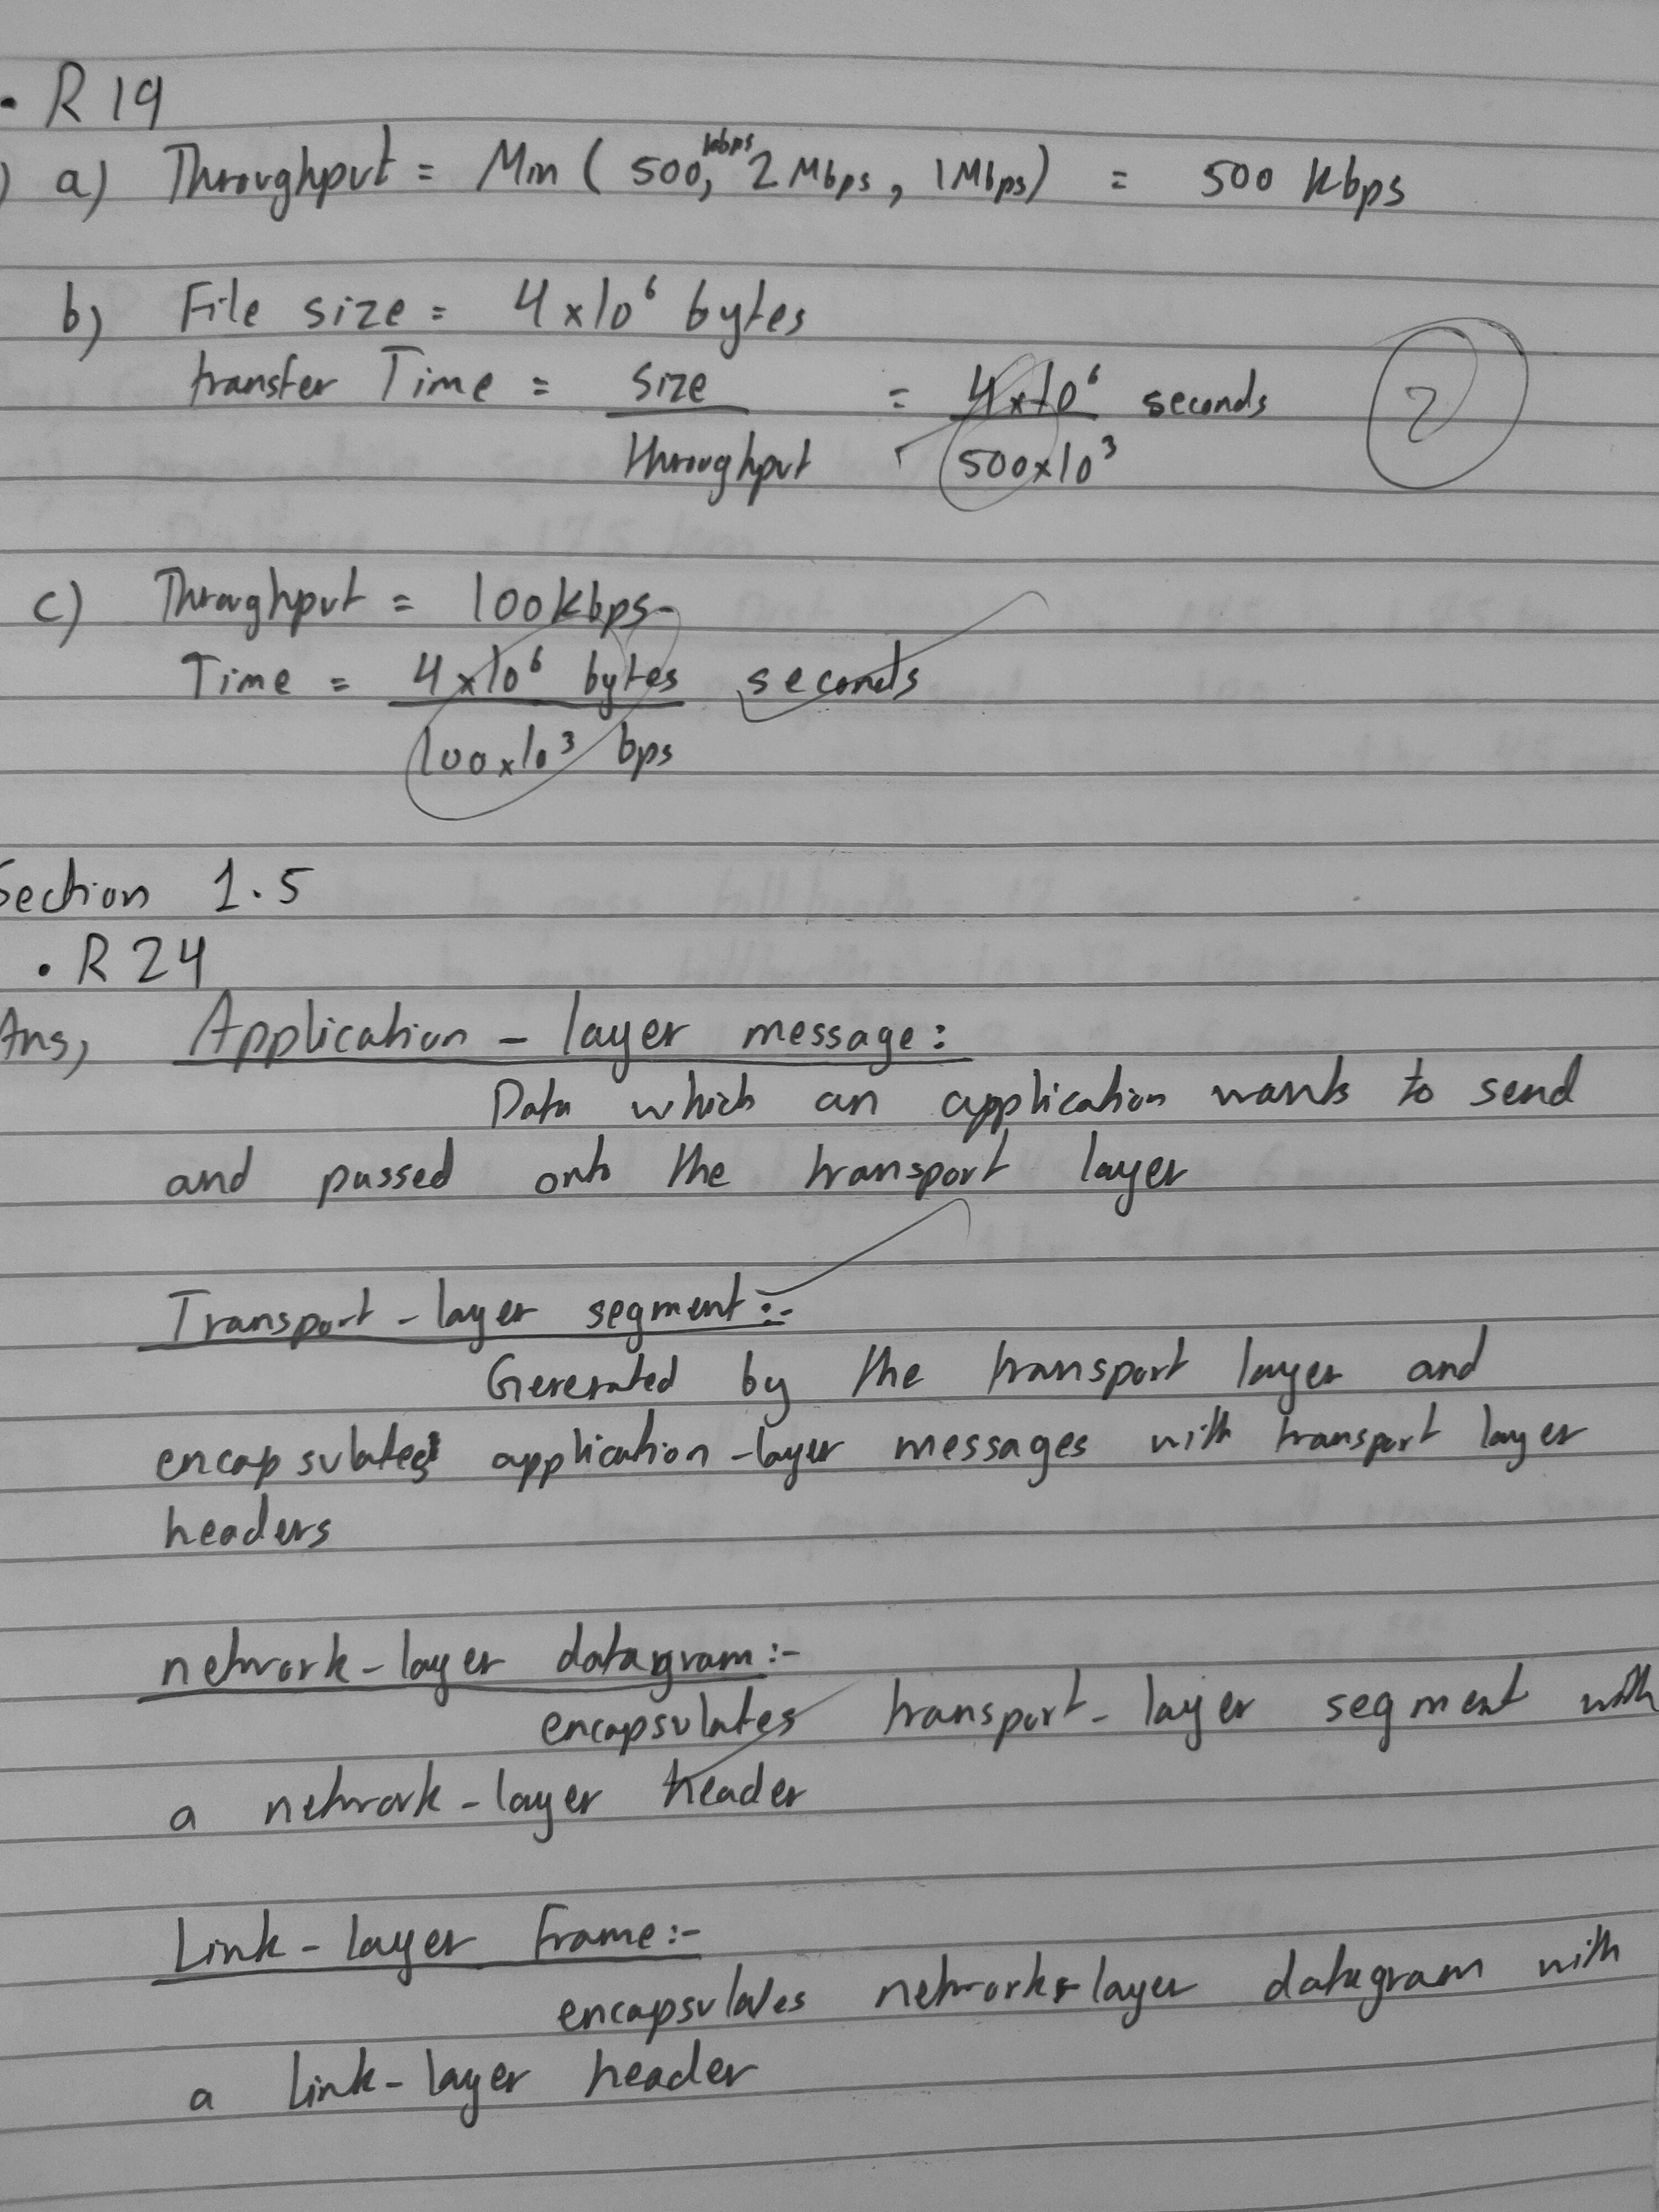 • R 19
) a) Throughput = Min ( 500 kbps, 2 Mbps, 1 Mbps) = 500 Kbps
b) File size = 4 x 10⁶ bytes
transfer Time = size / throughput = 4 x 10⁶ / 500 x 10³ seconds
2
c) Throughput = 100 Kbps
Time = 4 x 10⁶ bytes / 100 x 10³ bps seconds
Section 1.5
• R 24
Ans, Application - layer message:
Data which an application wants to send
and passed onto the transport layer
Transport - layer segment :-
Generated by the transport layer and
encapsulates application - layer messages with transport layer
headers
network - layer datagram :-
encapsulates transport - layer segment with
a network - layer header
Link - layer Frame :-
encapsulates network - layer datagram with
a link - layer header